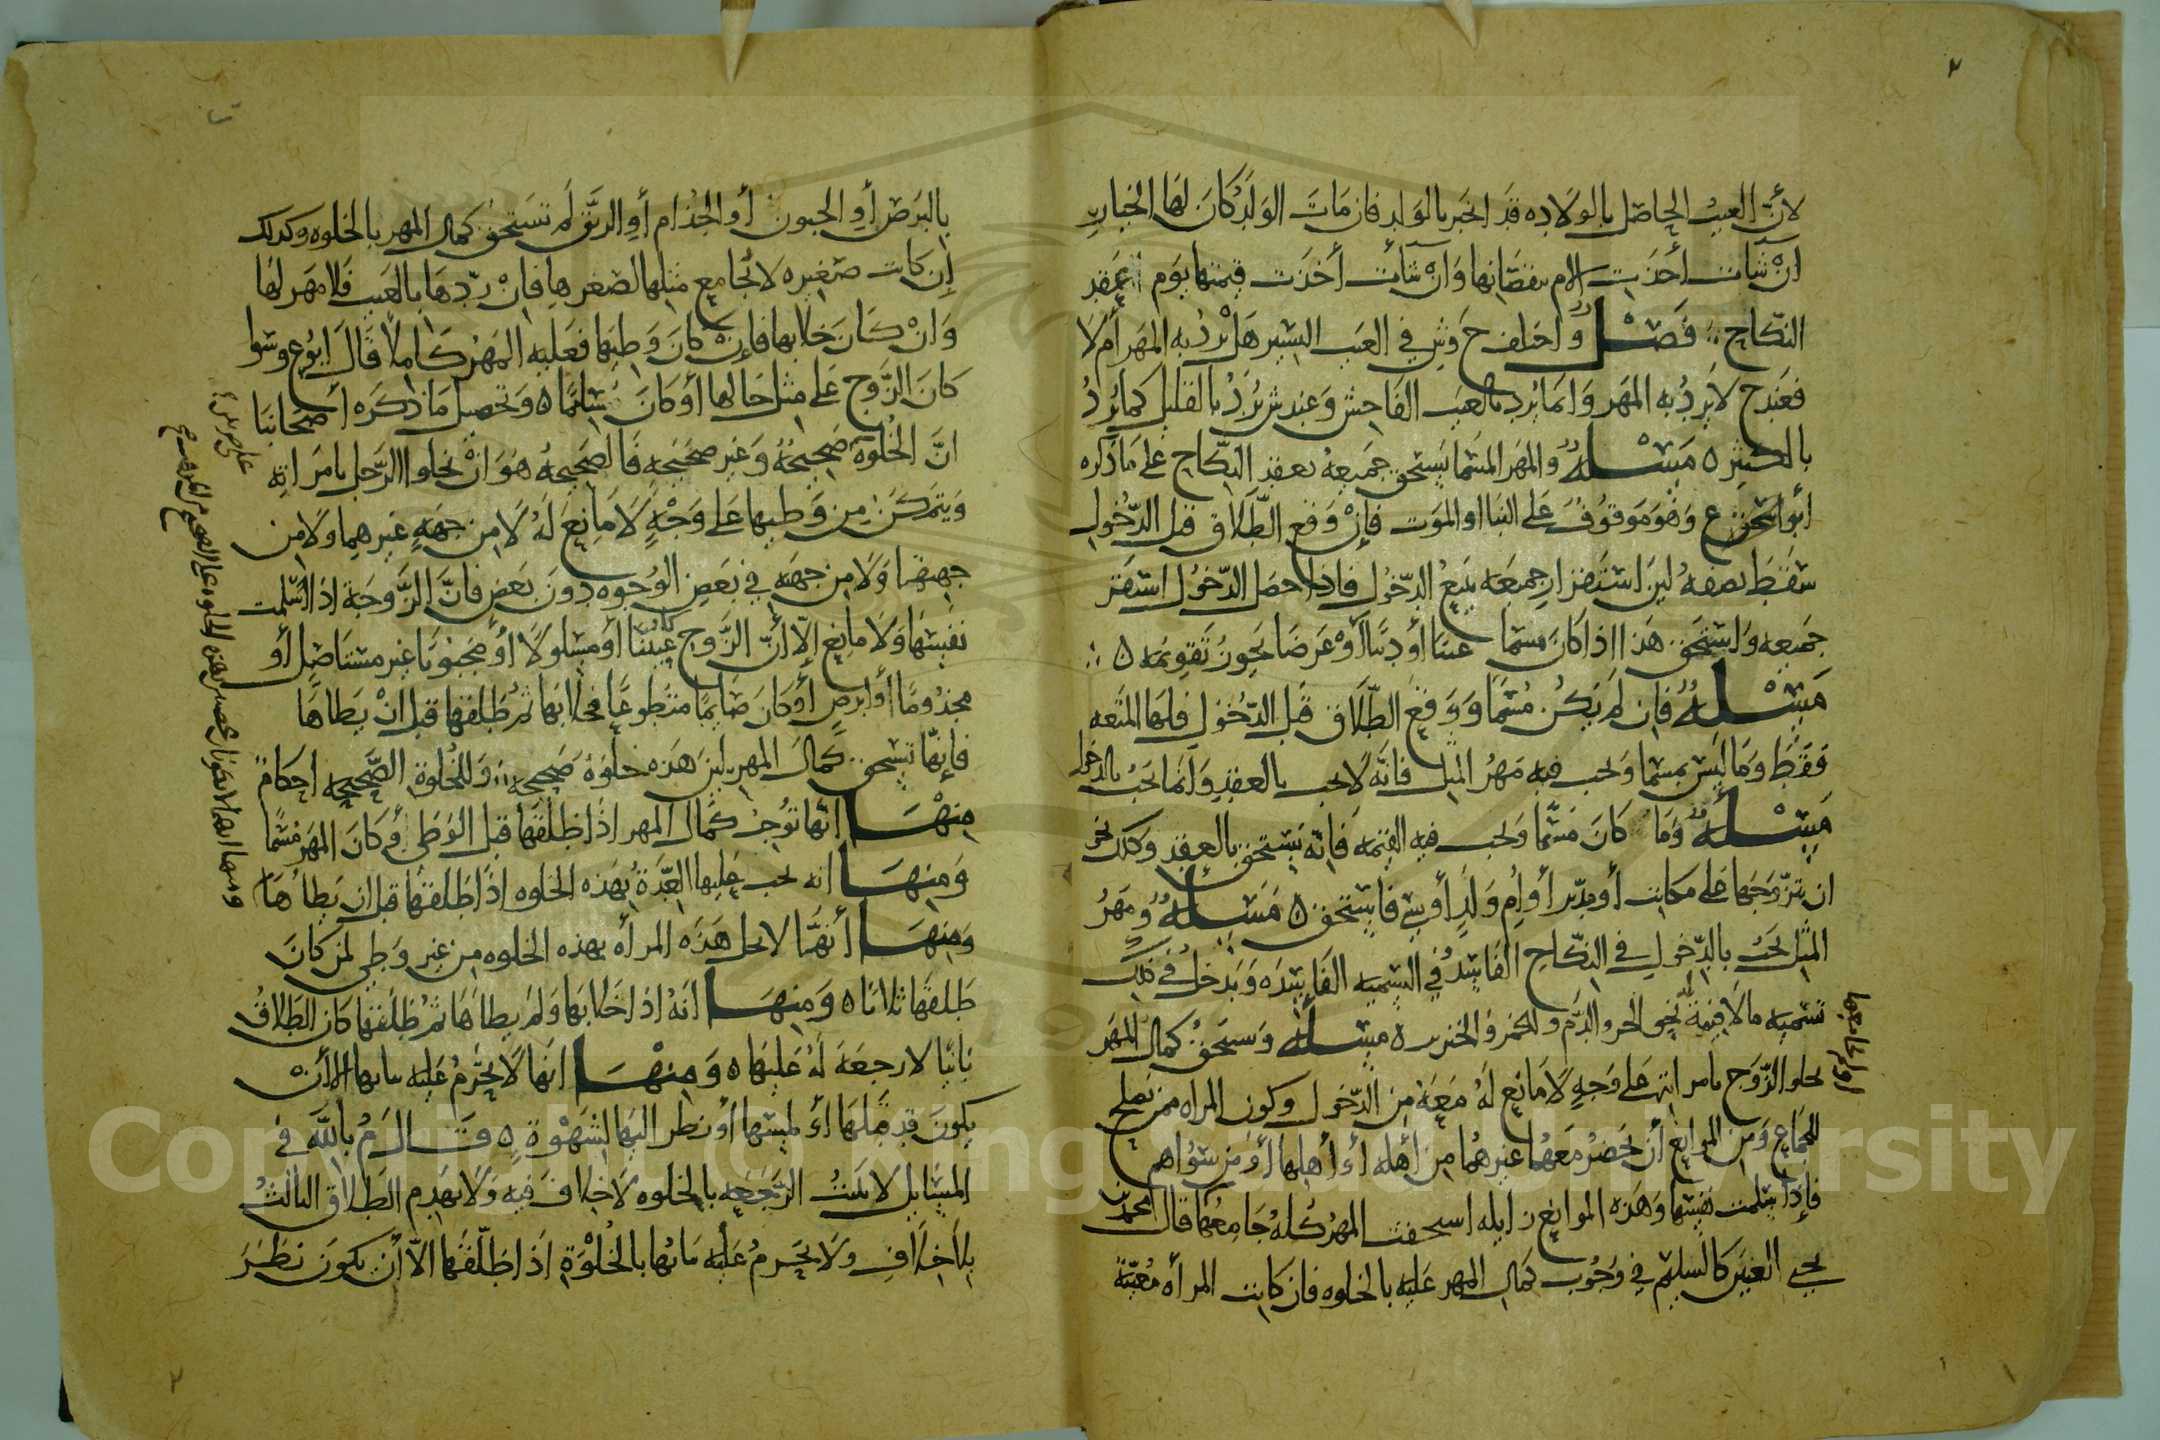 لأن العيب الحاصل بالولاده قد انجبر بالولد فان مات الولد كان لها الخيار
ان شات أخذت الام بنقصانها وان شأت أخذت قيمتها يوم عقد
النكاح فصل واختلف ح وش في العيب اليسير هل يرد به المهر أم لا
فعند ح لا يرد به المهر وانما يرد بالعيب الفاحش وعند ش يرد بالقليل كما يرد
بالكثير ه مسله والمهر المسما يستحق جميعه بعقد النكاح على ما ذكره
أبو اسحق ع وهو موقوف على البنا او الموت فإن وقع الطلاق قبل الدخول
سقط نصفه لين استقرار جميعه يتبع الدخول فاذا حصل الدخول استقر
جميعه واستحق هذا اذا كان مسما عينا أو دينا أو عرضا يجوز تقويمه ه
مسله فان لم يكن مسما ووقع الطلاق قبل الدخول فلها المتعه
فقط وما ليس بمسما ويجب فيه مهر المثل فانه لا يجب بالعقد وانما يجب بالدخول
مسله وما كان مسما ويجب فيه القيمه فانه يستحق بالعقد وذلك نحو
ان يتزوجها على مكاتب أو مدبر أو أم ولد أو شي فاستحق ه مسله ومهر
المثل يجب بالدخول في النكاح الفاسد وفي التسميه الفاسده ويدخل في ذلك
تسميه ما لا قيمة له نحو الحر والدم والخمر والخنزير ه مسله ويستحق كمال المهر
يخلو الزوج بامراته على وجه لا مانع له معه من الدخول وكون المراه ممن تصلح
للجماع ومن الموانع أن يحضر معهما غيرهما من أهله أو أهلها أو من سواهم
فإذا سلمت نفسها وهذه الموانع زايله استحقت المهر كله جامعها قال محمد بن
يحيى العنين كالسليم في وجوب كمال المهر عليه بالخلوه فان كانت المرأه معيبة
بالبرص أو الجنون أو الجذام أو الرتق لم تستحق كمال المهر بالخلوه وكذلك
إن كانت صغيره لا تجامع مثلها لصغرها فإن ردها بالعيب فلا مهر لها
وان كان خلا بها فإن كان وطيها فعليه المهر كاملا قال أبو ع وسوا
كان الزوج على مثل حالها أو كان سالما ه وتحصيل ما ذكره أصحابنا
ان الخلوة صحيحة وغير صحيحه فالصحيحه هو ان يخلو الرجل بامراته
ويتمكن من وطيها على وجه لا مانع له لا من جهه غيرهما ولا من
جهتهما ولا من جهه في بعض الوجوه دون بعض فان الزوجة اذا سلمت
نفسها ولا مانع إلا أن الزوج كان عنينا أو مسلولا أو مجبوبا غير مستاصل أو
مجذوما أو أبرص أو كان صايما متطوعا فخلا بها ثم طلقها قبل ان يطاها
فإنها تستحق كمال المهر لين هذه خلوة صحيحه وللخلوة الصحيحه احكام
منها انها توجب كمال المهر اذا طلقها قبل الوطي وكان المهر مسما
ومنها انه يجب عليها العدة بهذه الخلوه اذا طلقها قبل ان يطاها
ومنها أنها لا تحل هذه المرأه بهذه الخلوه من غير وطي لمن كان
طلقها ثلاثا ه ومنها أنه اذا خلا بها ولم يطاها ثم طلقها كان الطلاق
باينا لا رجعة له عليها ه ومنها انها لا تحرم عليه بناتها الا أن
يكون قد قبلها أو لمسها أو نظر اليها لشهوة ه قال م بالله في
المسايل لا يثبت الرجعه بالخلوه لا خلاف فيه ولا يهدم الطلاق الثالث
بلا خلاف ولا يحرم عليه بناتها بالخلوة اذا طلقها الا أن يكون نظر
Copyright © King Saud University